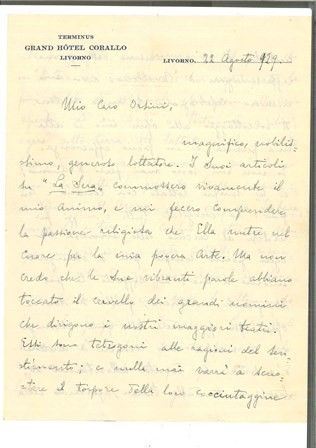 TERMINUS
GRAND HÔTEL CORALLO
LIVORNO
LIVORNO, 22 Agosto 929.
Mio Caro Orsini,
magnifico, nobilis-
simo, generoso lottatore. I Suoi articoli
su "La Sera" commossero vivamente il
mio animo, e mi fecero comprendere
la passione religiosa che Ella nutre nel
Cuore per la mia povera Arte. Ma non
credo che le Sue vibranti parole abbiano
toccato il cervello dei grandi uomini
che dirigono i nostri maggiori teatri.
Essi sono tetragoni alle ragioni del sen-
timento; e nulla mai varrà a scuo-
tere il torpore della loro cocciutaggine